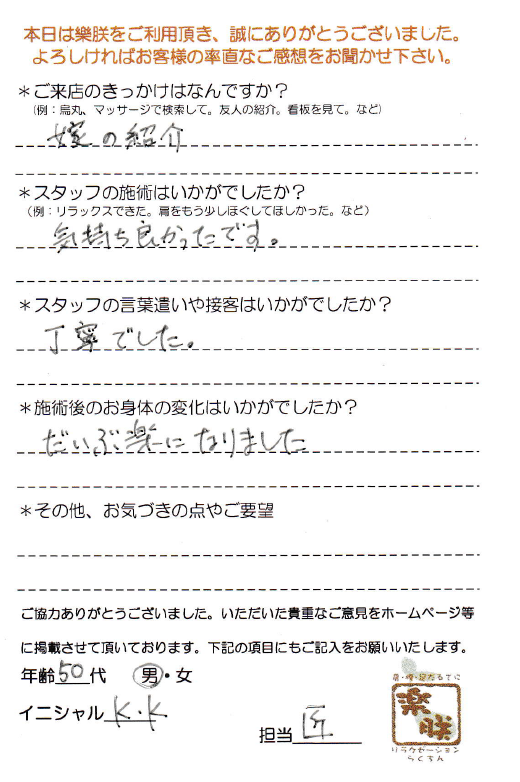 本日は樂朕をご利用頂き、誠にありがとうございました。
よろしければお客様の率直なご感想をお聞かせ下さい。
＊ご来店のきっかけはなんですか？
（例：烏丸、マッサージで検索して。友人の紹介。看板を見て。など）
嫁の紹介
＊スタッフの施術はいかがでしたか？
（例：リラックスできた。肩をもう少しほぐしてほしかった。など）
気持ち良かったです。
＊スタッフの言葉遣いや接客はいかがでしたか？
丁寧でした。
＊施術後のお身体の変化はいかがでしたか？
だいぶ楽になりました
＊その他、お気づきの点やご要望
ご協力ありがとうございました。いただいた貴重なご意見をホームページ等
に掲載させて頂いております。下記の項目にもご記入をお願いいたします。
年齢50代 男・女
イニシャル K.K
担当 匠
樂朕
リラクゼーション
らくちん